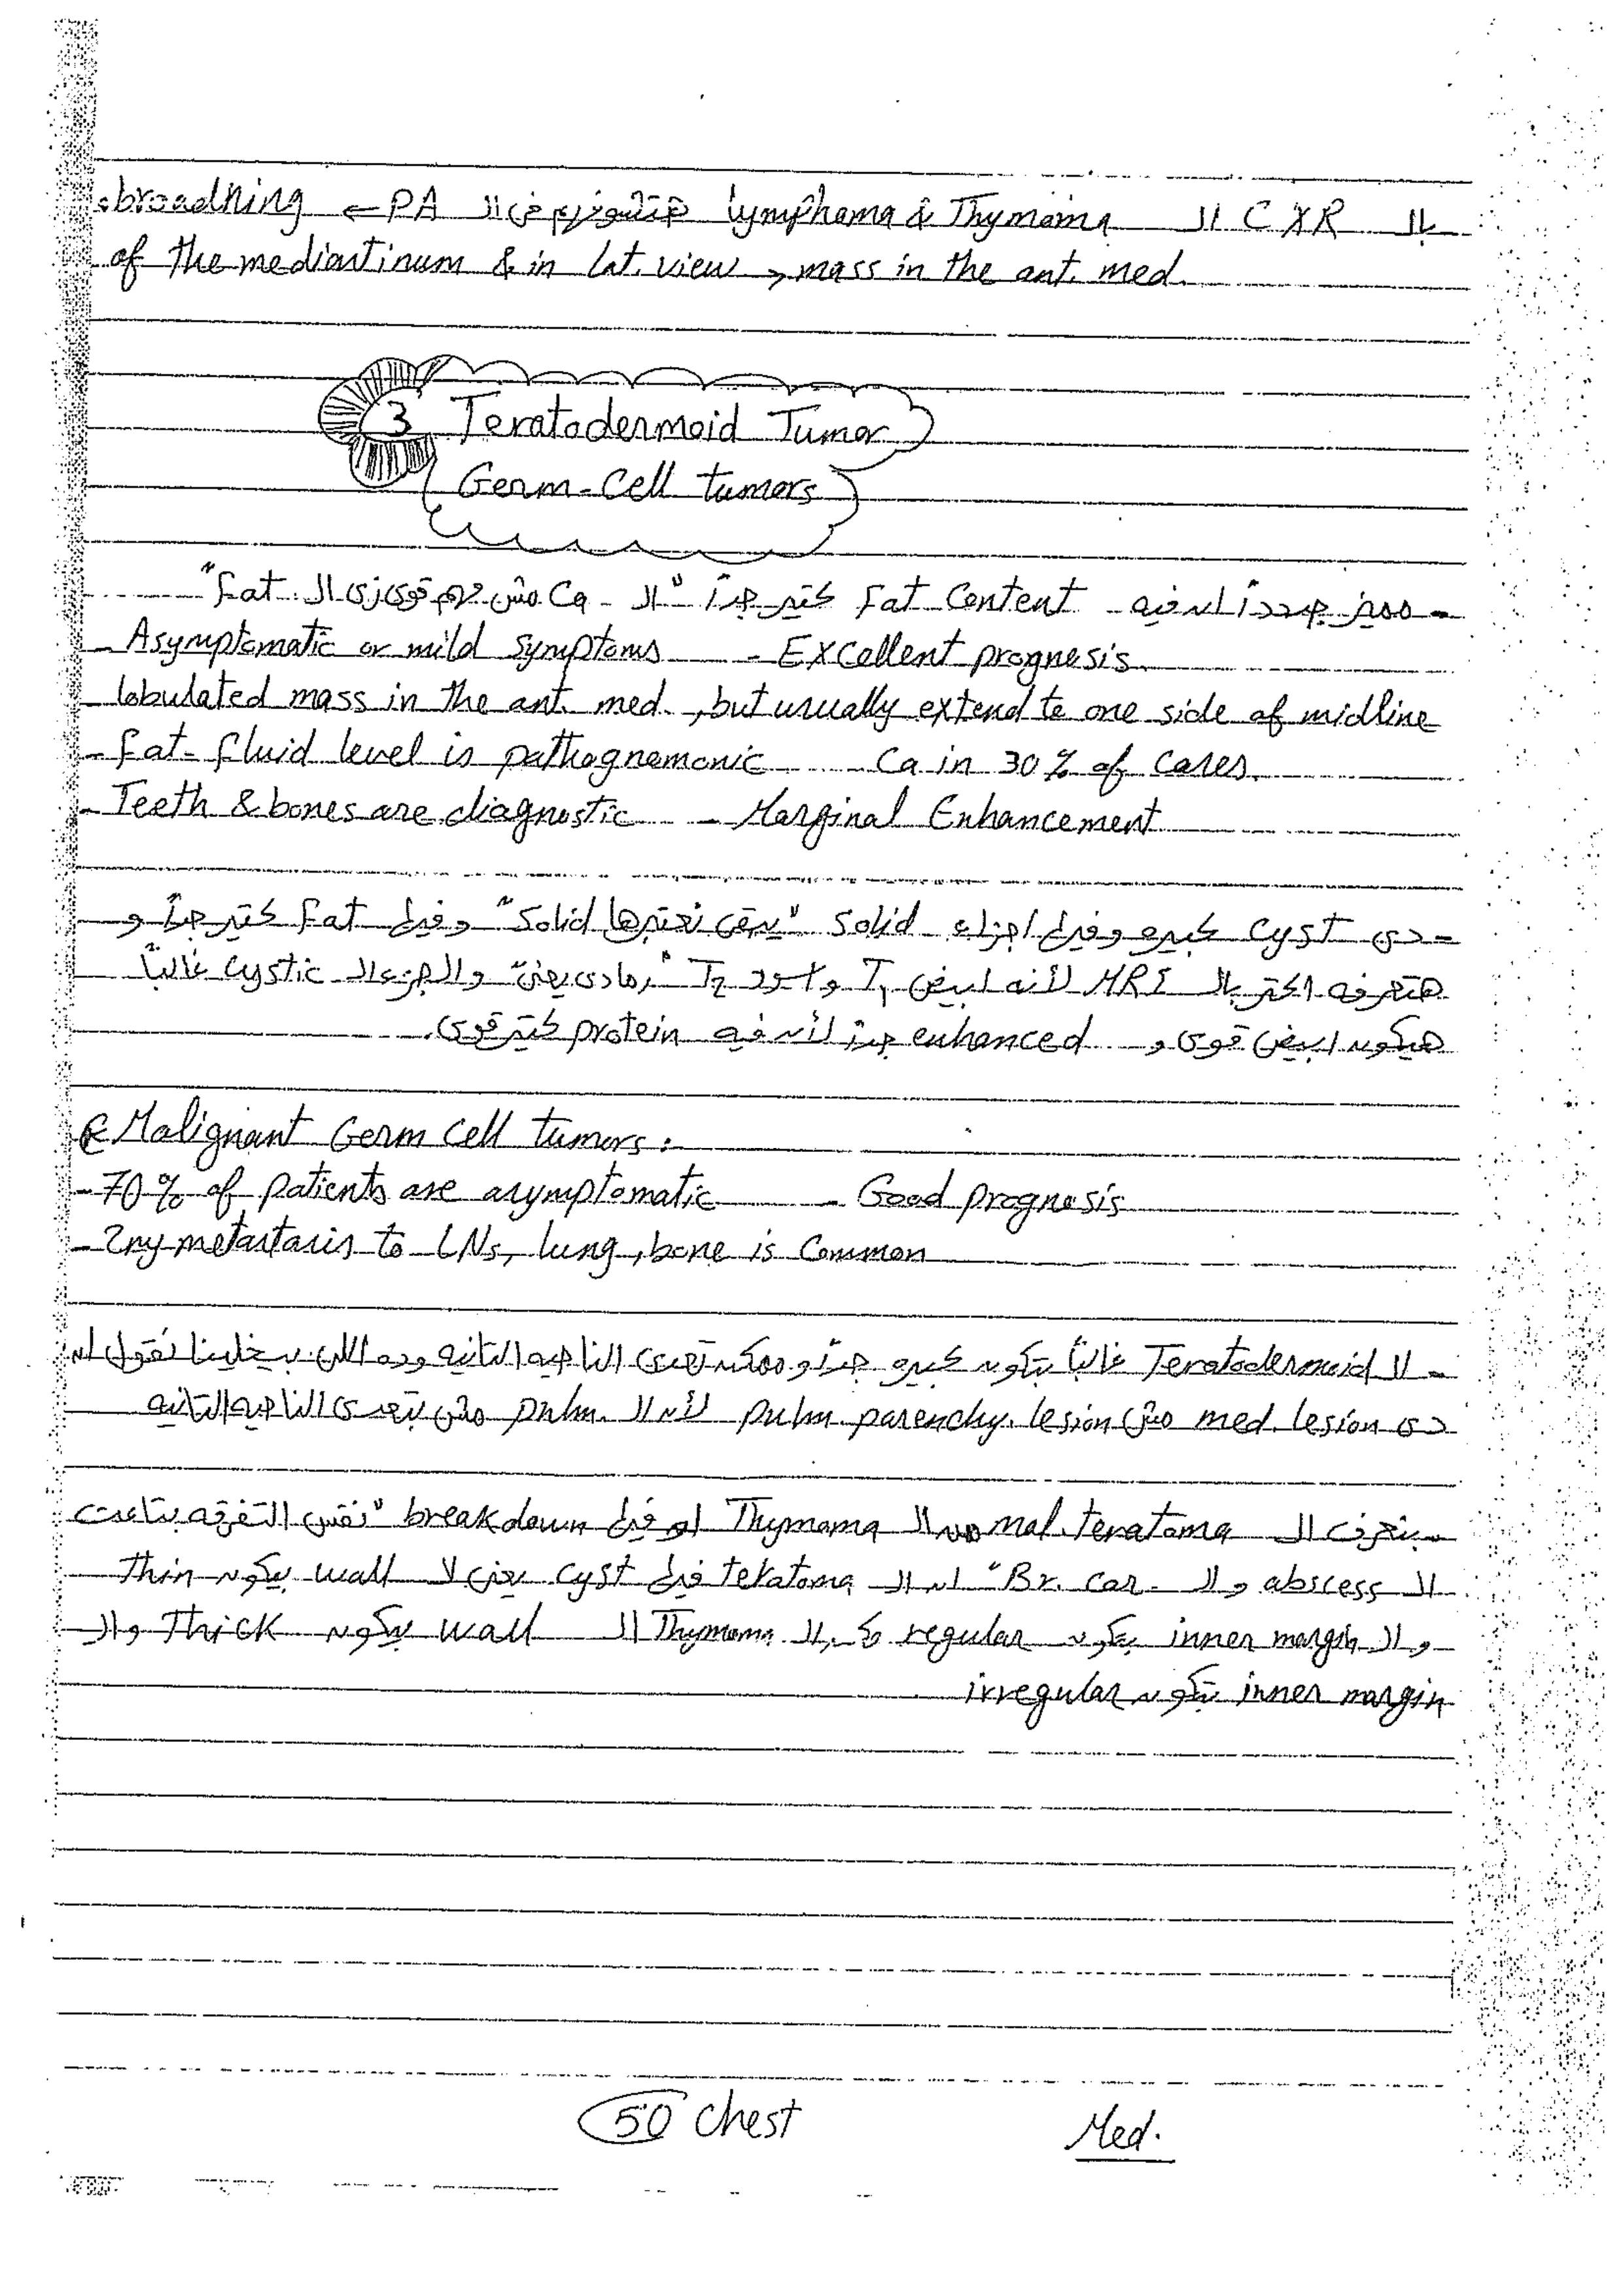 بالـ CXR الـ Lymphoma & Thymoma هتشوفهم في الـ PA ← broadning
of the mediastinum & in lat. view > mass in the ant. med.
3 Teratodermoid Tumor
Germ-Cell tumors
- مميز جدداً ان فيه Fat Content كتير جداً "الـ Ca مش مهم قوي زي الـ Fat"
- Asymptomatic or mild symptoms - Excellent prognosis
- lobulated mass in the ant. med., but usually extend to one side of midline
- Fat-fluid level is pathognomonic Ca in 30% of cases.
- Teeth & bones are diagnostic - Marginal Enhancement
- دي cyst كبيره وفيها اجزاء solid "يبقى نعتبرها Solid" وفيها Fat كتير جداً و
هتعرفه اكتر بالـ MRI لأنه ابيض T1 واسود T2 "رمادي يعني" والجزء الـ cystic غالباً
هيكون ابيض قوي و enhanced جداً لأن فيه protein كتير قوي.
Malignant Germ cell tumors:
- 70% of patients are asymptomatic - Good prognosis
- 2ry metastasis to LNs, lung, bone is common
- الـ Teratodermoid غالباً بتكون كبيره جداً وممكن تعدي الناحيه التانيه وده اللي بيخلينا نقول ان
دي med. lesion مش pulm parenchy. lesion لأن الـ pulm. مش بتعدي الناحيه التانيه
- بنعرف الـ mal. teratoma من الـ Thymoma لو فيها breakdown "نفس التفرقه بتاعت
الـ abscess والـ Br. car." ان الـ teratoma فيها cyst يعني الـ wall بيكون Thin
والـ inner margin بيكون regular الـ Thymoma الـ wall بيكون Thick والـ
inner margin بتكون irregular
50 Chest
Med.